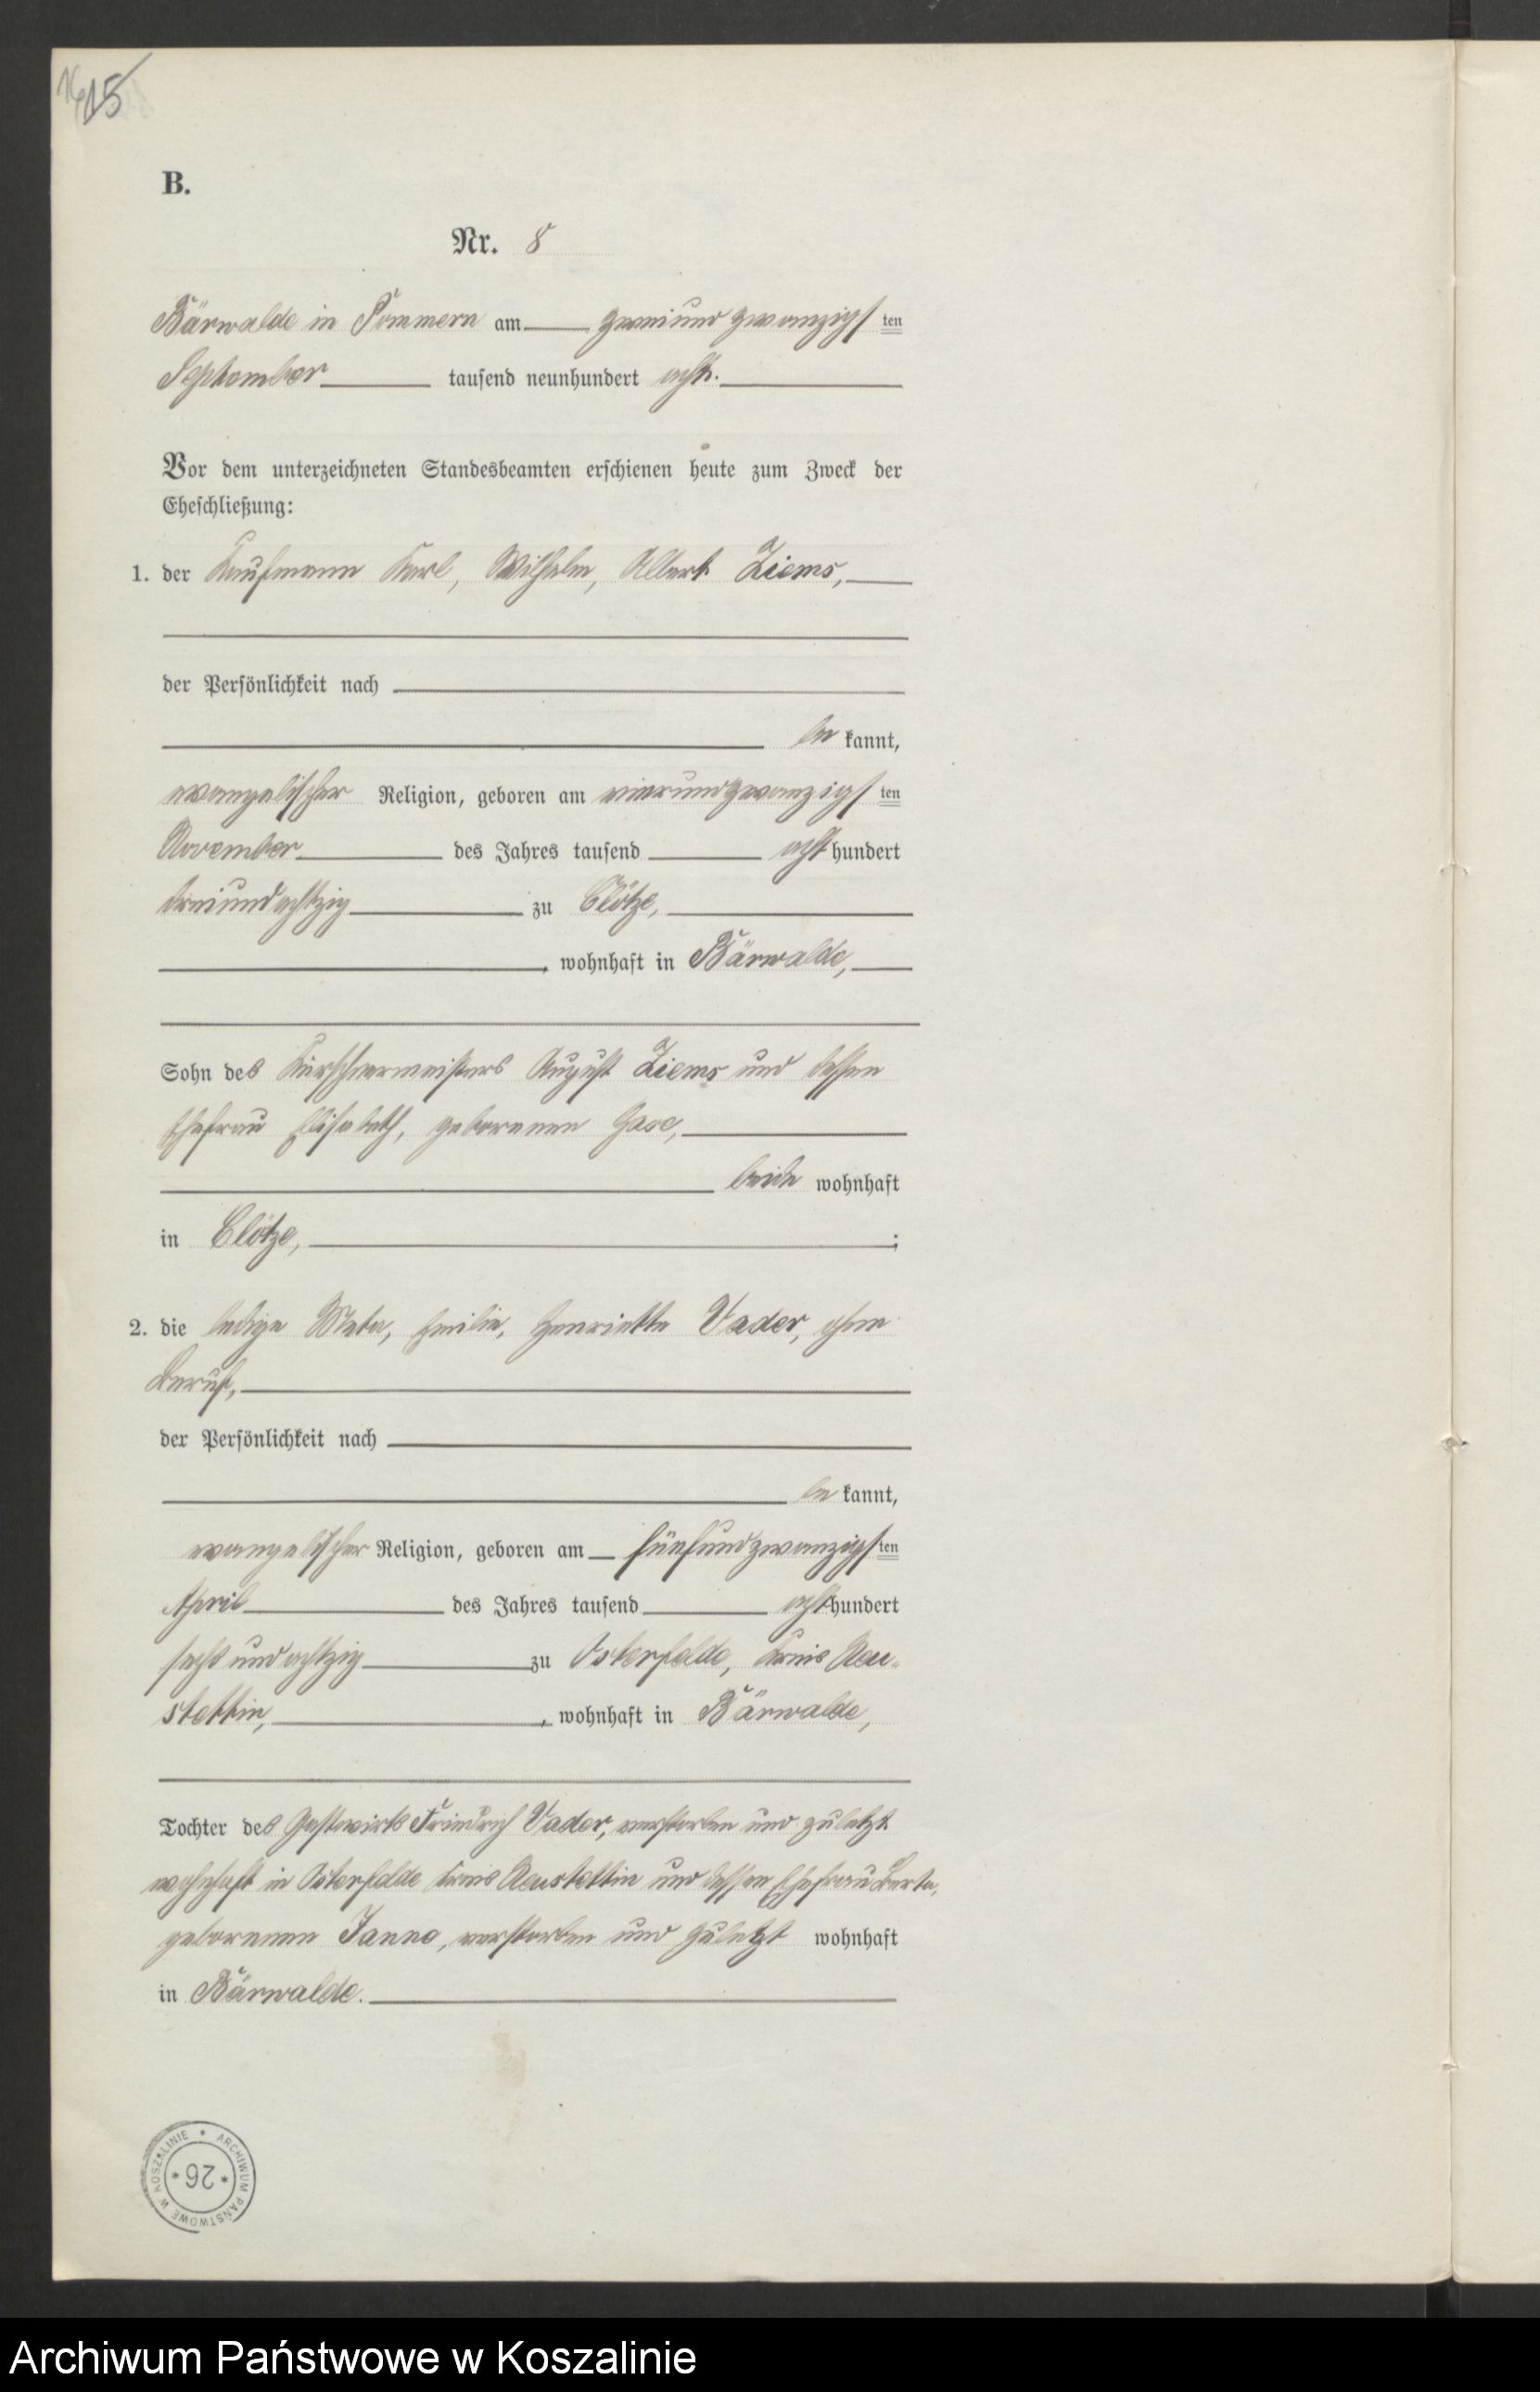 15
B.
Nr. 8
Bärwalde in Pommern am zweiundzwanzigsten
September tausend neunhundert acht.
Vor dem unterzeichneten Standesbeamten erschienen heute zum Zweck der
Eheschließung:
1. der Kaufmann Karl, Wilhelm, Albert Ziems,
der Persönlichkeit nach
bekannt,
evangelischer Religion, geboren am vierundzwanzigsten
November des Jahres tausend achthundert
dreiundachtzig zu Clötze,
, wohnhaft in Bärwalde,
Sohn des Kürschnermeisters August Ziems und dessen
Ehefrau Elisabeth, geborenen Gase,
beide wohnhaft
in Clötze, ;
2. die ledige Meta, Emilie, Henriette Vader, ohne
Beruf,
der Persönlichkeit nach
bekannt,
evangelischer Religion, geboren am fünfundzwanzigsten
April des Jahres tausend achthundert
sechsundachtzig zu Osterfelde, Kreis Neu-
stettin, , wohnhaft in Bärwalde,
Tochter des Gastwirts Friedrich Vader, verstorben und zuletzt
wohnhaft in Osterfelde Kreis Neustettin und dessen Ehefrau Berta,
geborenen Janno, verstorben und zuletzt wohnhaft
in Bärwalde.
ARCHIWUM PAŃSTWOWE W KOSZALINIE
* 26 *
Archiwum Państwowe w Koszalinie